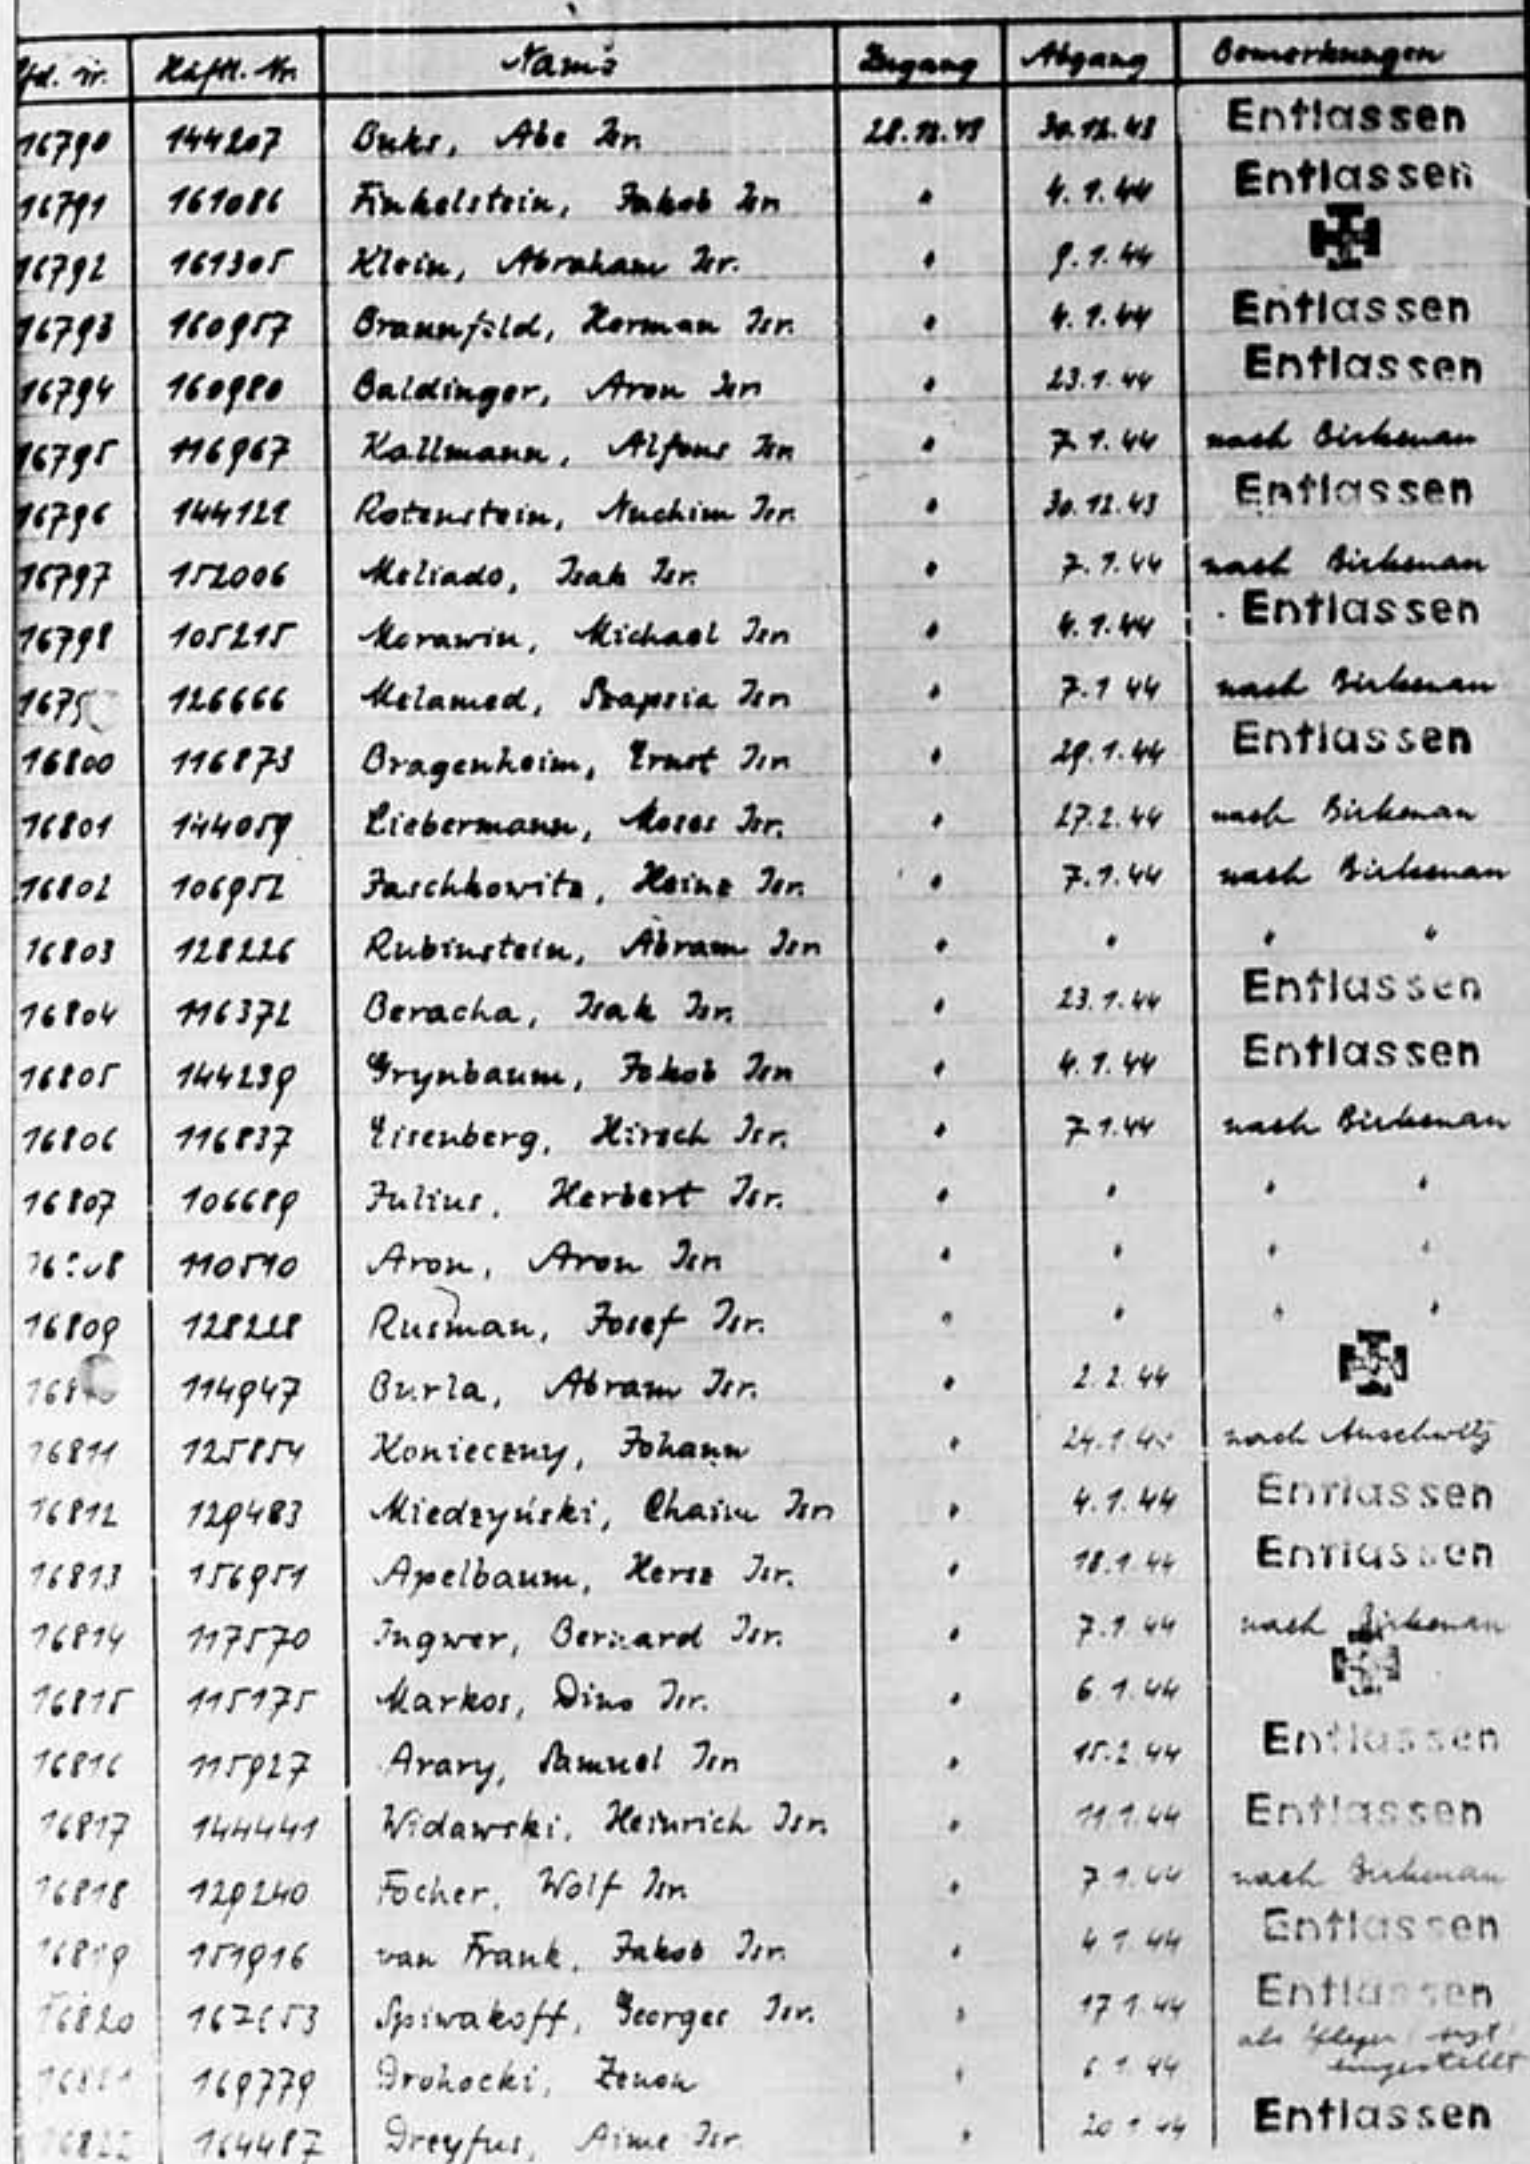 Lfd. Nr. Häftl. Nr. Name Zugang Abgang Bemerkungen
16790 144207 Buks, Abe Isr. 28.12.43 30.12.43 Entlassen
16791 161086 Finkelstein, Jakob Isr. " 4.1.44 Entlassen
16792 161305 Klein, Abraham Isr. " 9.1.44
16793 160957 Braunfeld, Herman Isr. " 4.1.44 Entlassen
16794 160980 Baldinger, Aron Isr. " 23.1.44 Entlassen
16795 116967 Kallmann, Alfons Isr. " 7.1.44 nach Birkenau
16796 144121 Rotenstein, Nuchim Isr. " 30.12.43 Entlassen
16797 152006 Meliado, Isak Isr. " 7.1.44 nach Birkenau
16798 105215 Morawin, Michael Isr. " 4.1.44 Entlassen
1679 126666 Melamed, Szapsia Isr. " 7.1.44 nach Birkenau
16800 116873 Bragenheim, Ernst Isr. " 29.1.44 Entlassen
16801 144059 Liebermann, Moses Isr. " 27.2.44 nach Birkenau
16802 106952 Jaschkowitz, Heinz Isr. " 7.1.44 nach Birkenau
16803 128226 Rubinstein, Abram Isr. " " " "
16804 116372 Beracha, Isak Isr. " 23.1.44 Entlassen
16805 144239 Grynbaum, Jakob Isr. " 4.1.44 Entlassen
16806 116837 Eisenberg, Hirsch Isr. " 7.1.44 nach Birkenau
16807 106689 Julius, Herbert Isr. " " " "
16808 110510 Aron, Aron Isr. " " " "
16809 128228 Rusman, Josef Isr. " " " "
168 114947 Burla, Abram Isr. " 2.2.44
16811 125854 Konieczny, Johann " 24.1.4 nach Auschwitz
16812 129483 Miedzyński, Chaim Isr. " 4.1.44 Entlassen
16813 156951 Apelbaum, Hersz Isr. " 18.1.44 Entlassen
16814 117570 Ingwer, Bernard Isr. " 7.1.44 nach Birkenau
16815 115175 Markos, Dino Isr. " 6.1.44
16816 115927 Arary, Samuel Isr. " 15.2.44 Entlassen
16817 144441 Widawski, Heinrich Isr. " 11.1.44 Entlassen
16818 129240 Focher, Wolf Isr. " 7.1.44 nach Birkenau
16819 151916 van Frank, Jakob Isr. " 4.1.44 Entlassen
16820 167653 Spiwakoff, Georges Isr. " 17.1.44 Entlassen
als Pfleger
eingestellt
16821 169779 Drohocki, Zenon " 6.1.44
16822 164487 Dreyfus, Aime Isr. " 20.1.44 Entlassen